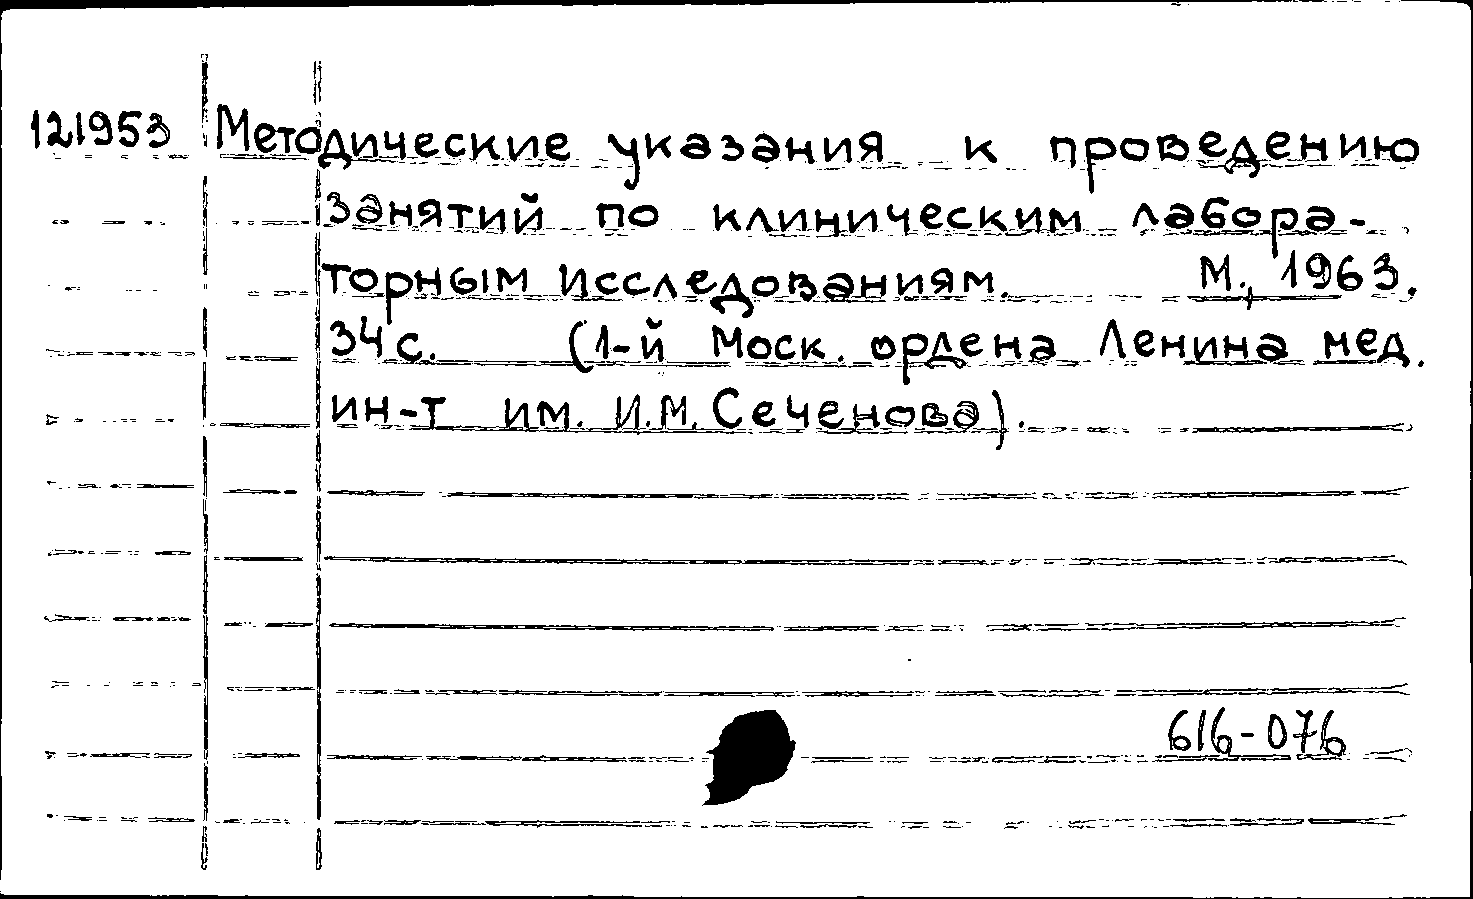 121953 Методические указания к проведению
занятий по клиническим лабора-
торным исследованиям. М., 1963.
34с. (1-й Моск. ордена Ленина мед.
ин-т им. И.М. Сеченова).
616-076